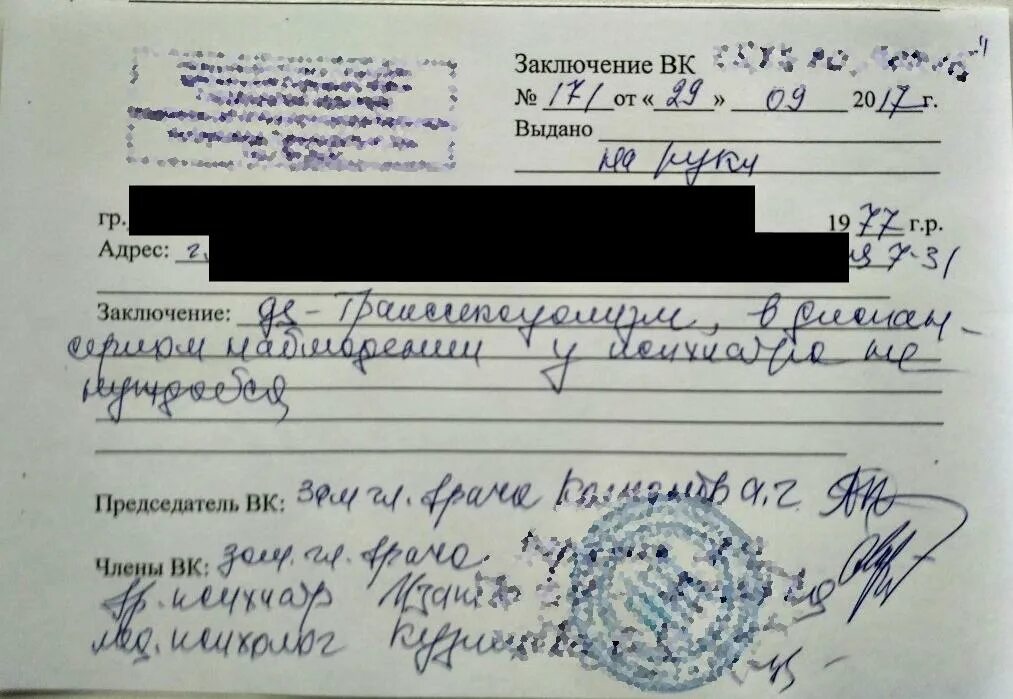 Заключение ВК
№ 171 от « 29 » 09 2017 г.
Выдано
на руки
гр. 1977 г.р.
Адрес: г. 7-31
Заключение: Ds - Транссексуализм, в диспан-
серном наблюдении у психиатра не
нуждается
Председатель ВК: зам гл. врача А.Г.
Члены ВК: зам. гл. врача
вр. психиатр
мед. психолог